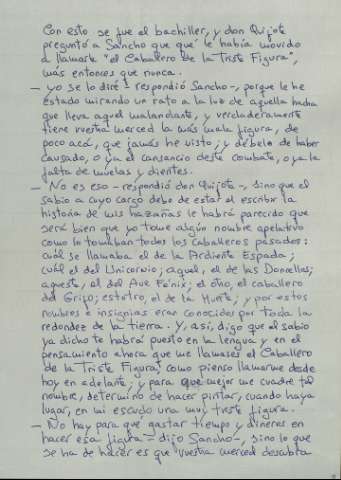 Con esto se fue el bachiller, y don Quijote
preguntó a Sancho que qué le había movido
a llamarle "el Caballero de la Triste Figura",
más entonces que nunca.
– Yo se lo diré – respondió Sancho –, porque le he
estado mirando un rato a la luz de aquella hacha
que lleva aquel malandante, y verdaderamente
tiene vuestra merced la más mala figura, de
poco acá, que jamás he visto; y débelo de haber
causado, o ya el cansancio deste combate, o ya la
falta de muelas y dientes.
– No es eso – respondió don Quijote –, sino que el
sabio a cuyo cargo debe de estar el escribir la
historia de mis hazañas le habrá parecido que
será bien que yo tome algún nombre apelativo
como lo tomaban todos los caballeros pasados:
cuál se llamaba el de la Ardiente Espada;
cuál el del Unicornio; aquel, el de las Doncellas;
aqueste, el del Ave Fénix; el otro, el caballero
del Grifo; estotro, el de la Muerte; y por estos
nombres e insignias eran conocidos por toda la
redondez de la tierra. Y, así, digo que el sabio
ya dicho te habrá puesto en la lengua y en el
pensamiento ahora que me llamases el Caballero
de la Triste Figura, como pienso llamarme desde
hoy en adelante; y para que mejor me cuadre tal
nombre, determino de hacer pintar, cuando haya
lugar, en mi escudo una muy triste figura.
– No hay para qué gastar tiempo y dineros en
hacer esa figura – dijo Sancho –, sino lo que
se ha de hacer es que vuestra merced descubra